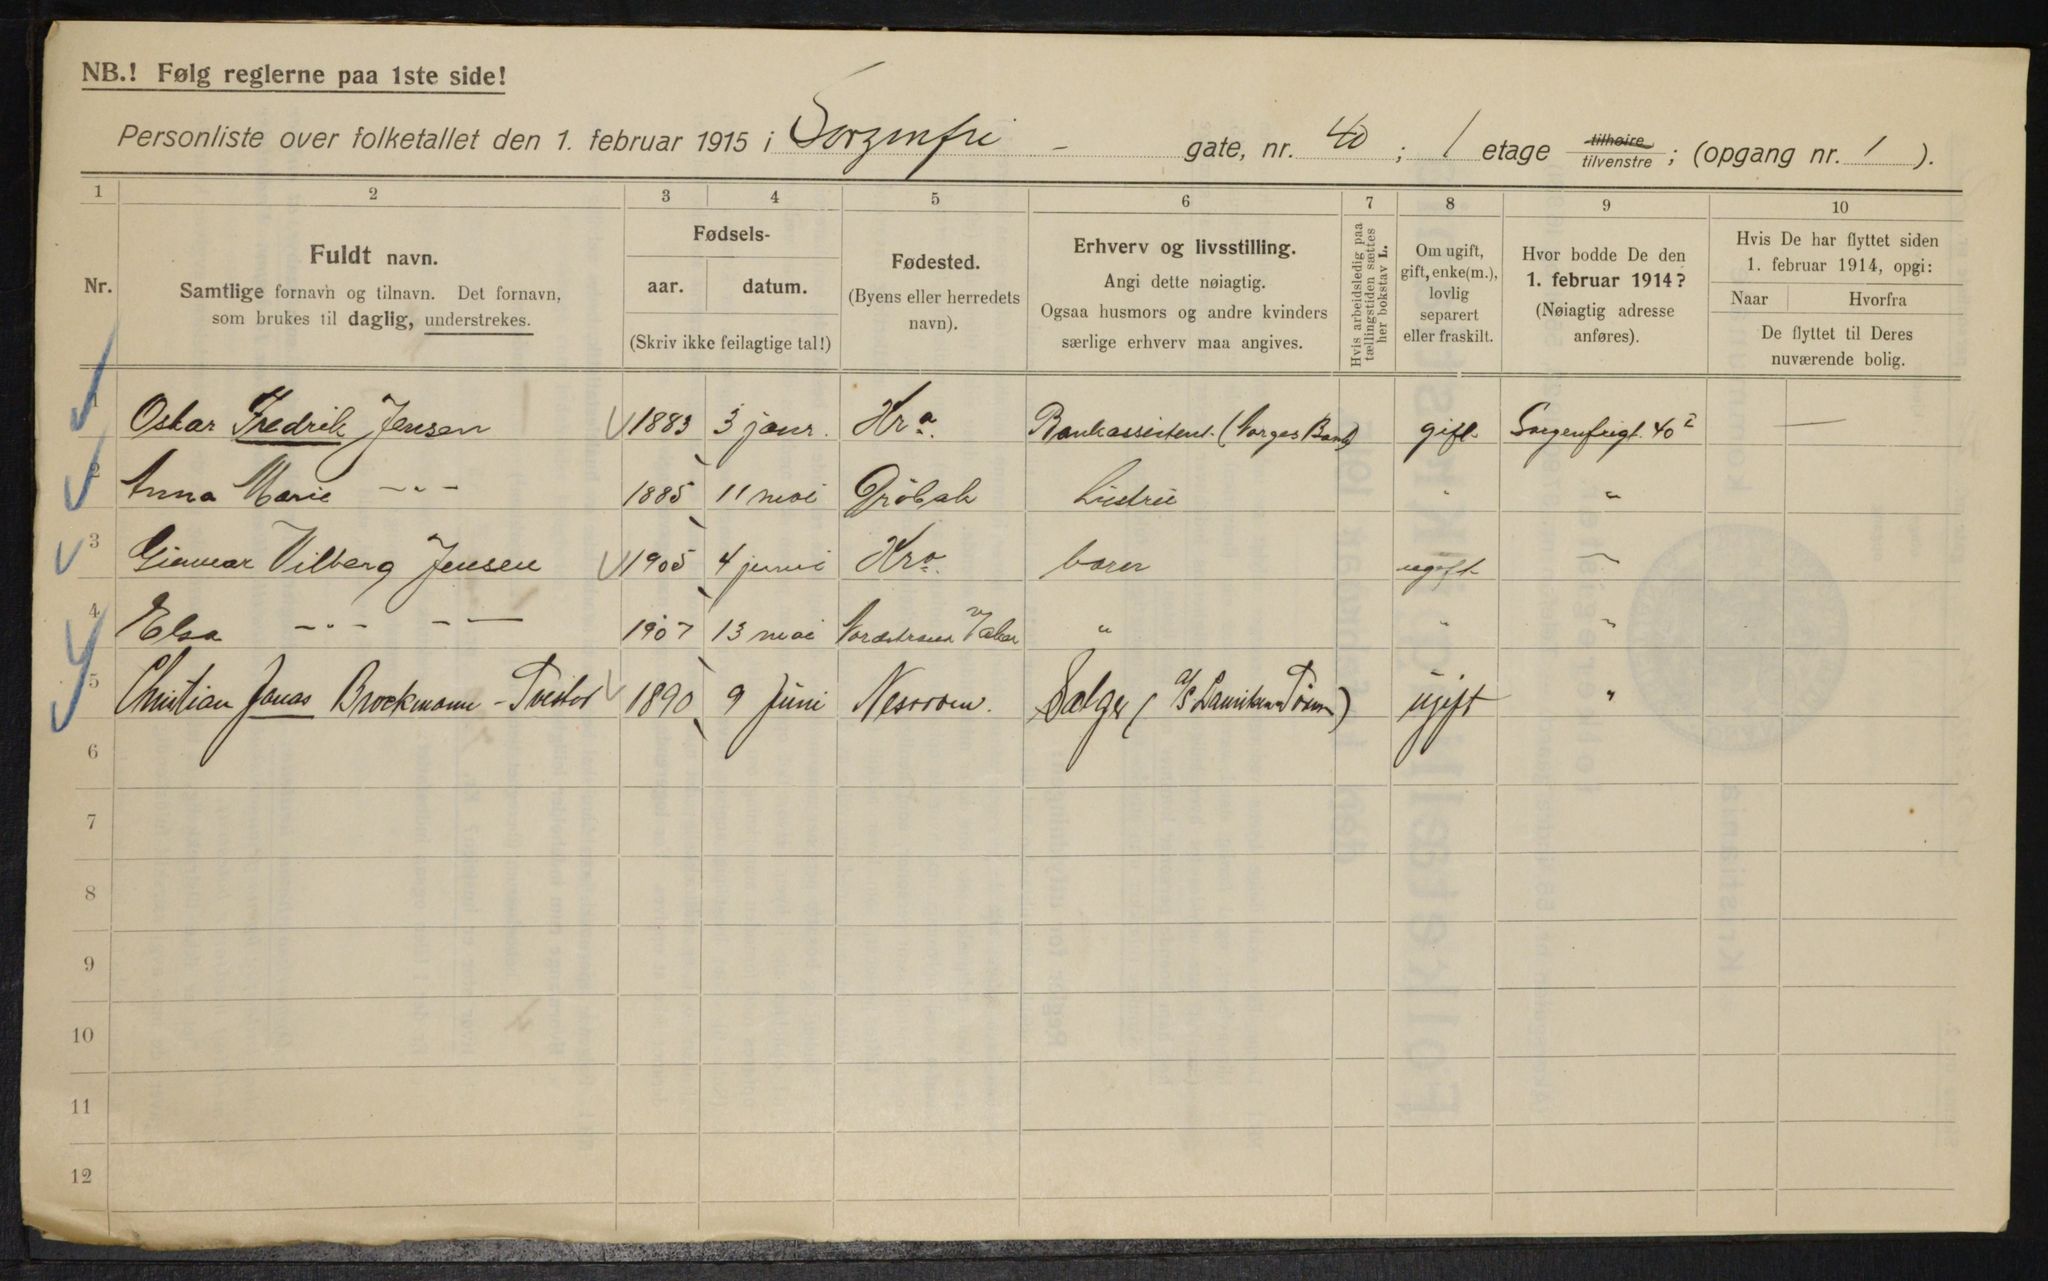 NB.! Følg reglerne paa 1ste side!
Personliste over folketallet den 1. februar 1915 i Sorgenfri - gate, nr. 40; 1 etage tilhøire tilvenstre; (opgang nr. 1).
1 2 3 4 5 6 7 8 9 10
Nr.
Fuldt navn.
Samtlige fornavn og tilnavn. Det fornavn,
som brukes til daglig, understrekes.
Fødsels-
aar. datum.
(Skriv ikke feilagtige tal!)
Fødested.
(Byens eller herredets
navn).
Erhverv og livsstilling.
Angi dette nøiagtig.
Ogsaa husmors og andre kvinders
særlige erhverv maa angives.
Hvis arbeidsledig paa
tællingstiden sættes
her bokstav L.
Om ugift,
gift, enke(m.),
lovlig
separert
eller fraskilt.
Hvor bodde De den
1. februar 1914?
(Nøiagtig adresse
anføres).
Hvis De har flyttet siden
1. februar 1914, opgi:
Naar Hvorfra
De flyttet til Deres
nuværende bolig.
1 Oskar Fredrik Jensen 1883 3 janr. Kra. Bankassistent (Norges Bank) gift Sorgenfrigt. 40 I —
2 Anna Marie -"- 1885 11 mai Drøbak " "
3 Vilberg Jensen 1905 4 juni Kra. ugift "
4 Elsa -"- -"- 1907 13 mai " " "
5 Christian Jonas Brockmann - 1890 9 Juni Selger (A/S ugift "
6
7
8
9
10
11
12